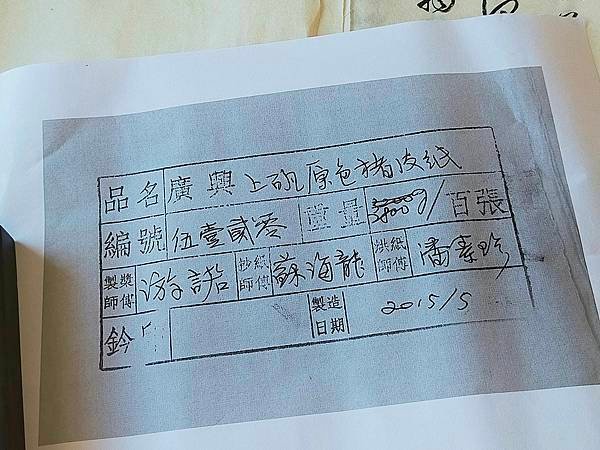 品名 廣興上矾原色楮皮紙
編號 伍壹貳零 重量 3800g/百張
製漿師傅 游諾 鈔紙師傅 蘇海龍 烘紙師傅 潘素珍
鈐 製造日期 2015/5